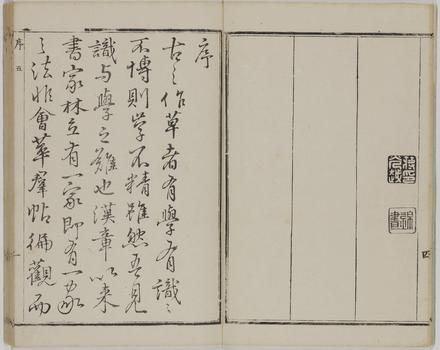 序
古之作草者有學有識〻
不博則学不精雖然吾見
識与學之難也漢章以来
書家林立有一家即有一家
之法非會萃羣帖徧觀而
序 五
一
四